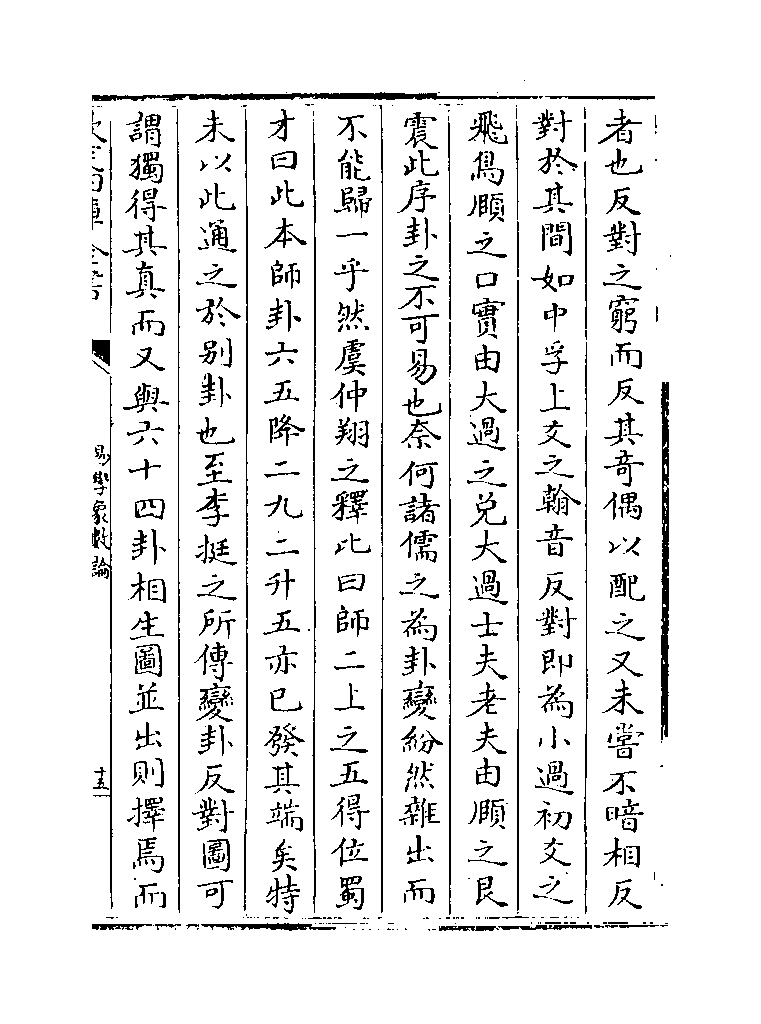 者也反對之窮而反其竒偶以配之又未嘗不暗相反
對於其間如中孚上爻之翰音反對即為小過初爻之
飛鳥頤之口實由大過之兌大過士夫老夫由頤之艮
震此序卦之不可易也奈何諸儒之為卦變紛然雜出而
不能歸一乎然虞仲翔之釋比曰師二上之五得位蜀
才曰此本師卦六五降二九二升五亦已發其端矣特
未以此通之於别卦也至李挺之所傳變卦反對圖可
謂獨得其真而又與六十四卦相生圖並出則擇焉而
易學象數論
十五